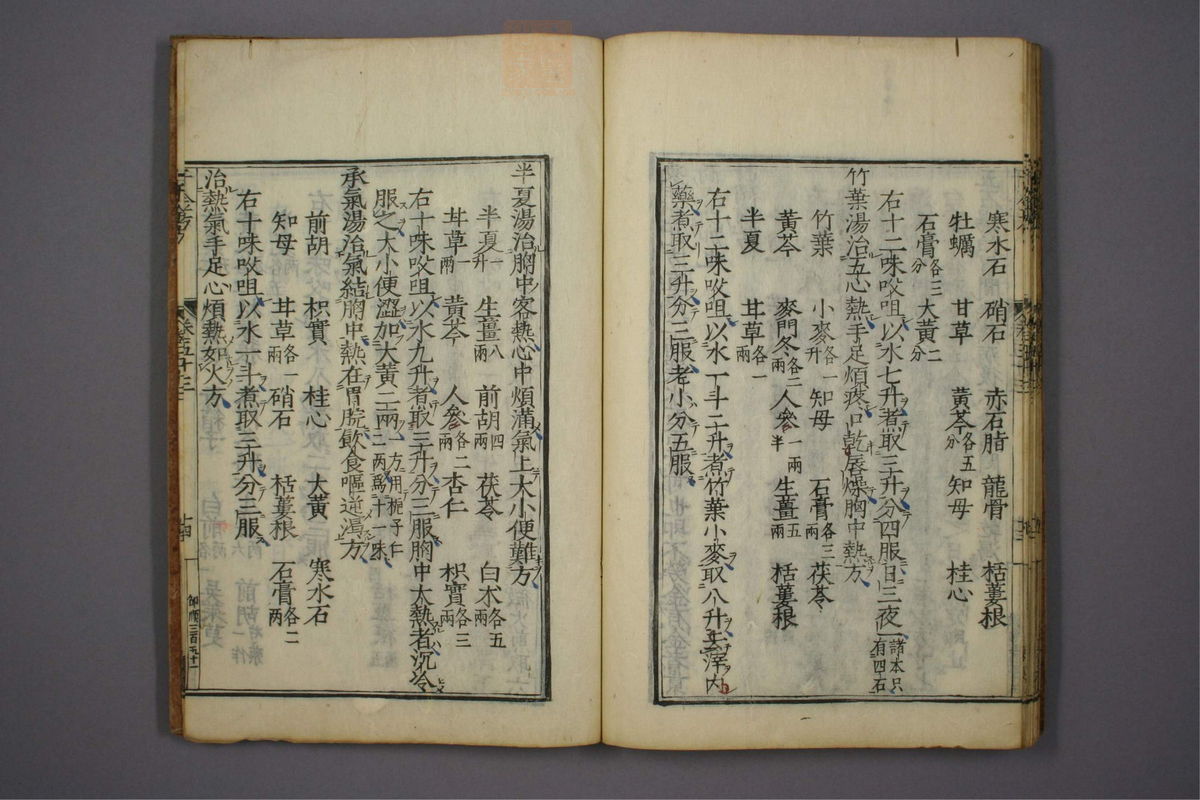 寒水石 硝石 赤石脂 龍骨 栝蔞根
牡蠣 甘草 黄芩各五分 知母 桂心
石膏各三分 大黄二分
右十二味㕮咀以水七升煮取三升分四服日三夜一諸本只有四石
竹葉湯治五心熱手足煩疼口乾唇燥胸中熱方
竹葉 小麥各一升 知母 石膏各三兩 茯苓
黄芩 麥門冬各二兩 人參一兩半 生薑五兩 栝蔞根
半夏 甘草各一兩
右十二味㕮咀以水一斗二升煮竹葉小麥取八升去滓内
藥煮取三升分三服老小分五服
半夏湯治胸中客熱心中煩滿氣上大小便難方
半夏一升 生薑八兩 前胡四兩 茯苓 白朮各五
甘草一兩 黄芩 人參各二兩 杏仁 枳實各三兩
右十味㕮咀以水九升煮取三升分三服胸中大熱者沉冷
服之大小便澀加大黄二兩一方用梔子仁二两爲十一味
承氣湯治氣結胸中熱在胃脘飲食嘔逆渴方
前胡 枳實 桂心 大黄 寒水石
知母 甘草各一兩 硝石 栝蔞根 石膏各二两
右十味㕮咀以水一斗煮取三升分三服
治熱氣手足心煩熱如火方
十四